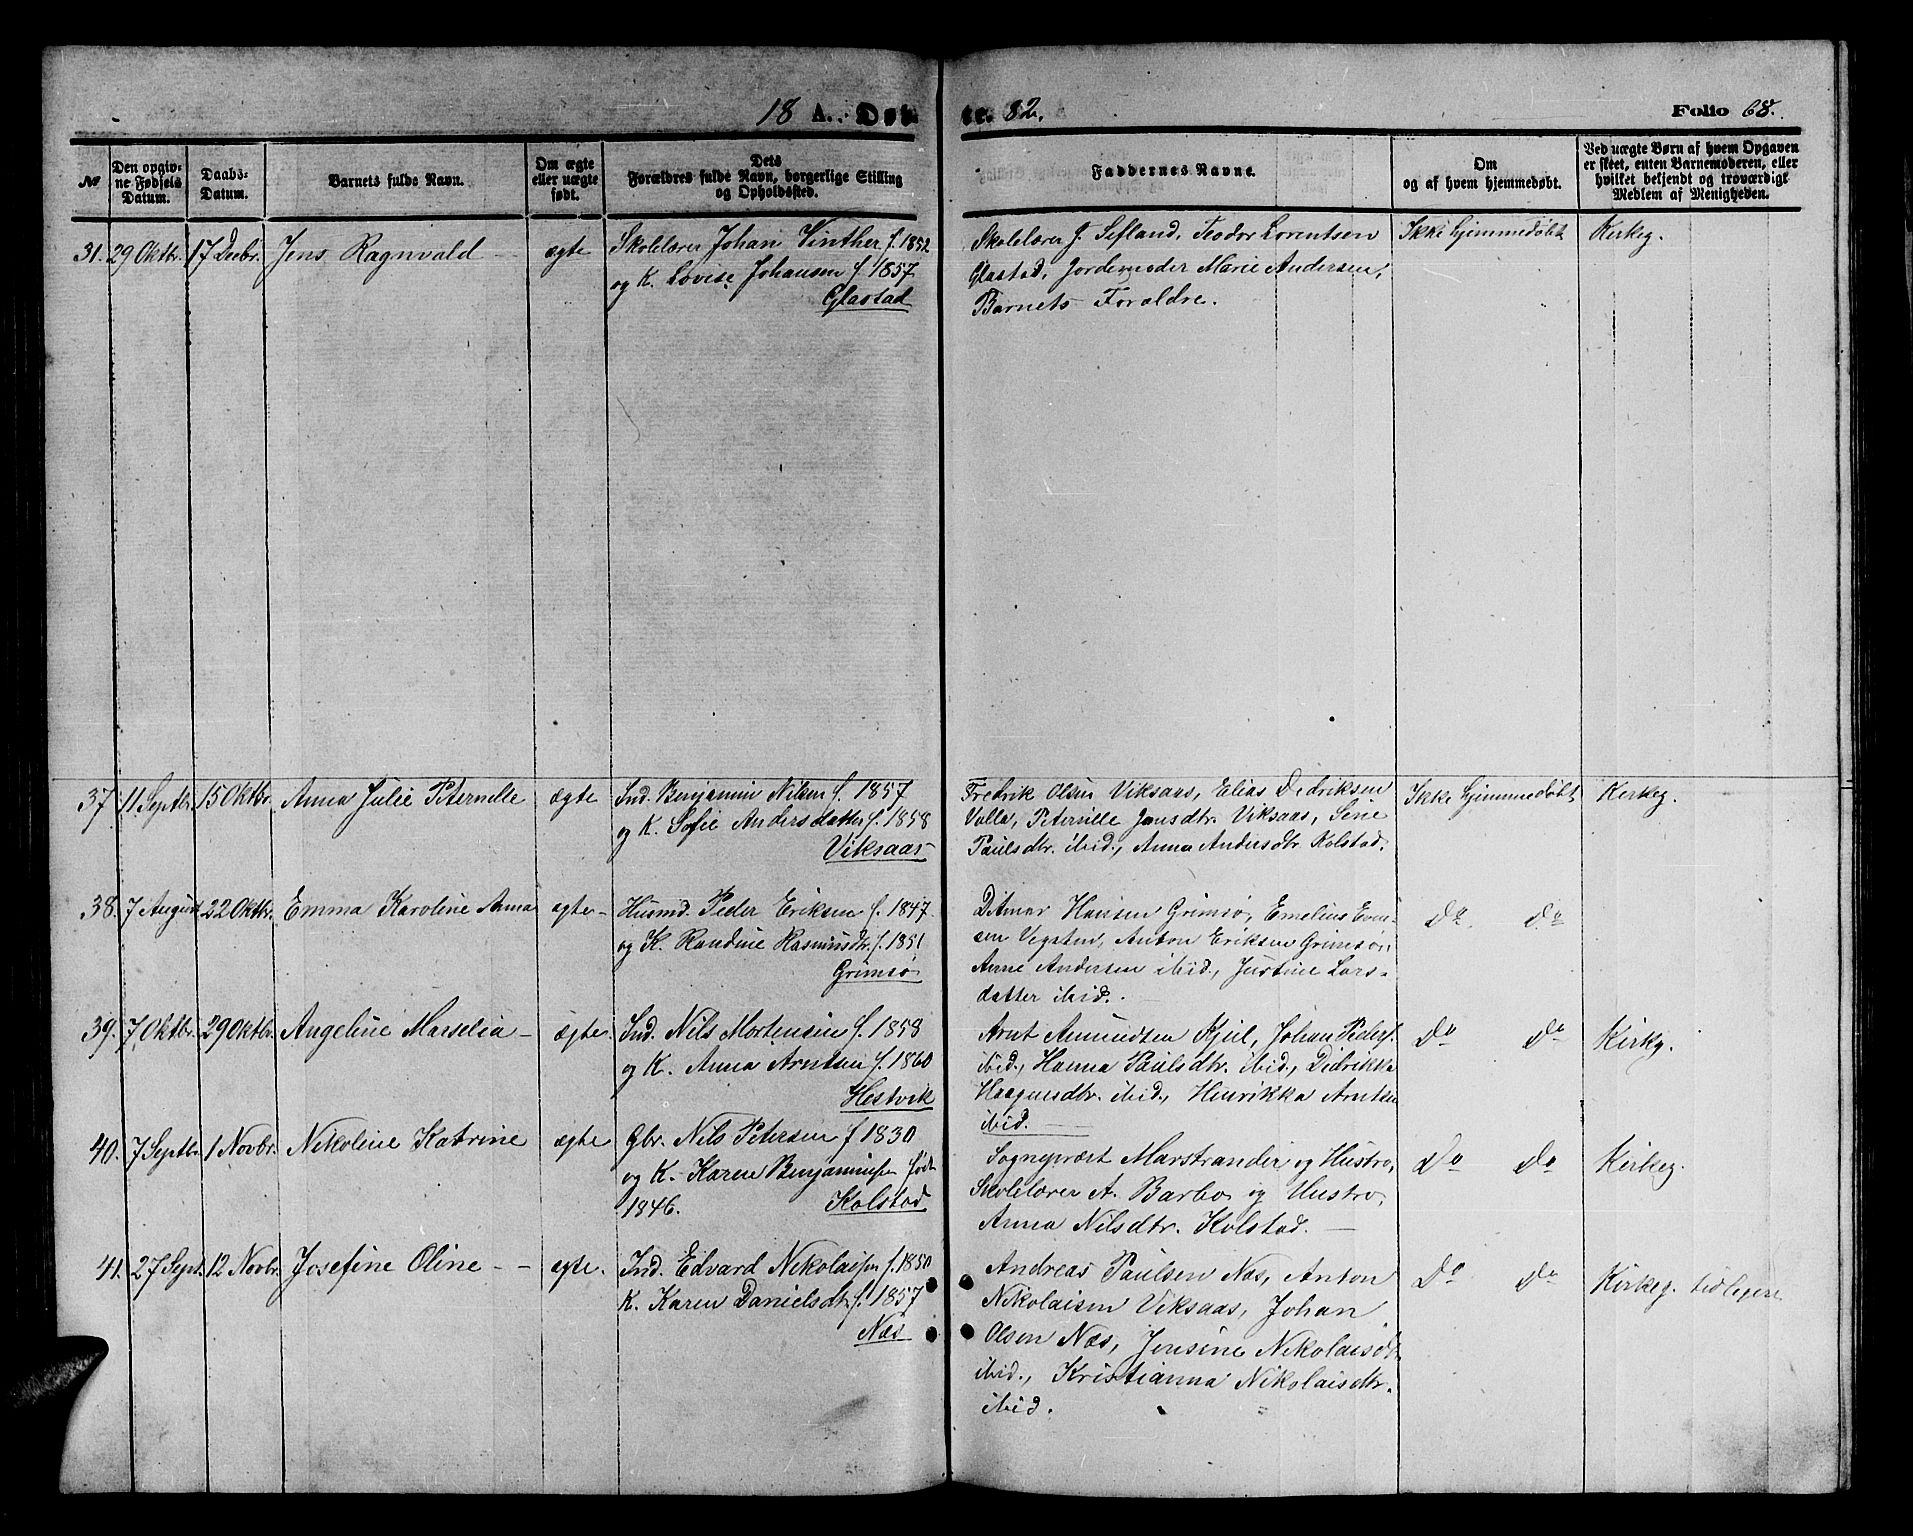 18 A. Døb
te. 82.
Folio 68.
№
Den opgiv-
ne Fødsels
Datum.
Daabs-
Datum.
Barnets fulde Navn.
Om ægte
eller uægte
født.
Dets
Forældres fulde Navn, borgerlige Stilling
og Opholdssted.
Faddernes Navne.
Om
og af hvem hjemmedøbt.
Ved uægte Børn af hvem Opgaven
er skeet, enten Barnemoderen, eller
hvilket bekjendt og troværdigt
Medlem af Menigheden.
31. 29 Oktbr. 17 Decbr. Jens Ragnvald - ægte
Skolelærer Johan Vinther f. 1852
og K. Lovise Johansen f. 1857
Glastad
Skolelærer J. Sefland, Teodor Lorentsen
Glastad, Jordemoder Marie Andersen,
Barnets Forældre.
Ikke hjemmedøbt Kirkeg.
37. 11 Septbr. 15 Oktbr. Anna Julie Peternelle ægte
Ind. Benjamin Nilsen f. 1857
og K. Sofie Andersdatter f. 1858
Viksaas
Fredrik Olsen Viksaas, Elias Didriksen
Valla, Peternille Jensdtr. Viksaas, Sine
Paulsdtr. ibid., Anna Andersdtr. Kolstad.
Ikke hjemmedøbt Kirkeg.
38. 7 August 22 Oktbr. Emma Karoline Anna ægte -
Husmd. Peder Eriksen f. 1847
og K. Randine Rasmusdtr. f. 1851
Grimsø
Ditmar Hansen Grimsø, Emelius Even-
sen Vegsten, Anton Eriksen Grimsø,
Anne Andersen ibid., Justine Lars-
datter ibid.
Do Do
39. 7 Oktbr. 29 Oktbr. Angeline Marselia - ægte.
Ind. Nils Mortensen f. 1858
og K. Anna Arntsen f. 1860
Hestvik
Arnt Amundsen Kjul, Johan Peders.
ibid., Hanna Paulsdtr. ibid., Didrikka
Haagensdtr. ibid., Hinrikka Arntsen
ibid.
Do Do Kirkg.
40. 7 Septbr. 1 Novbr. Nikoline Katrine ægte
Gbr. Nils Petersen f 1830
og K. Karen Benjaminsen født
1846. Kolstad
Sogneprest Marstrander og Hustro,
Skolelærer A. Barbo og Hustro,
Anna Nilsdtr. Kolstad.
Do Do Kirkeg.
41. 27 Sept. 12 Novbr. Josefine Oline - - ægte.
Ind. Edvard Nikolaisen f. 1850
K. Karen Danielsdtr. f. 1857
Næs
Andreas Paulsen Næs, Anton
Nikolaisen Viksaas, Johan
Olsen Næs, Jensine Nikolaisdtr
ibid., Kristianna Nikolaisdtr.
ibid.
Do Do Kirkeg. tidligere